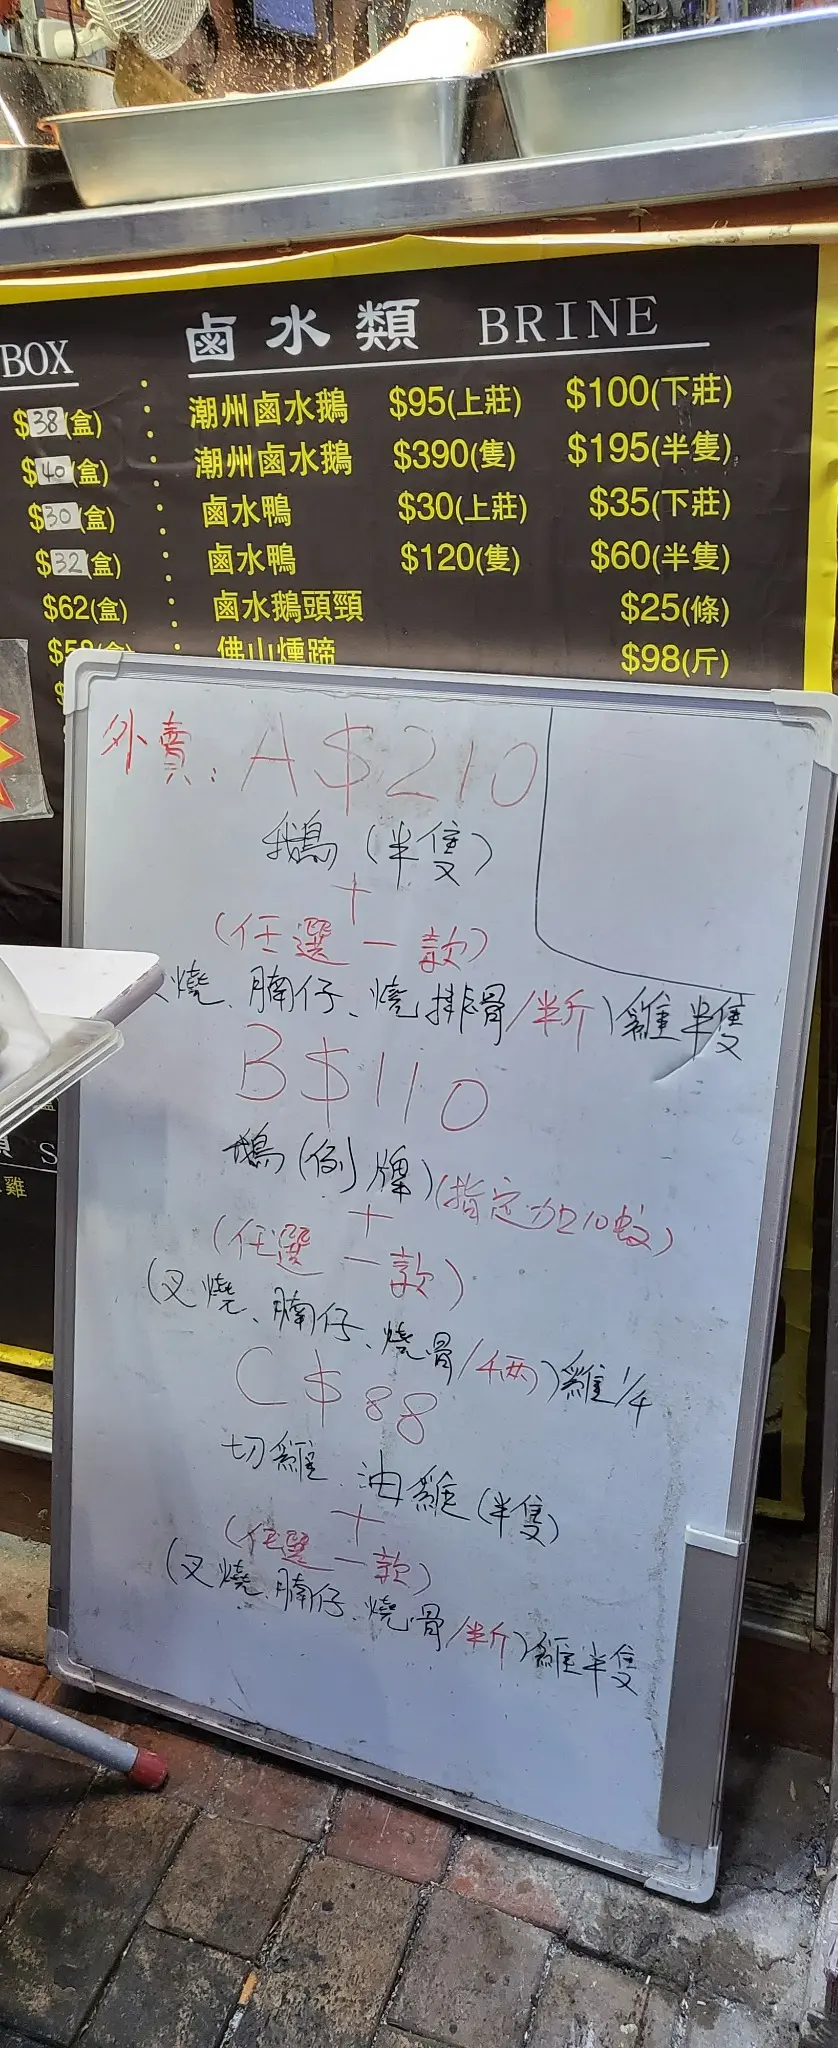 BOX
$38(盒)
$40(盒)
$30(盒)
$32(盒)
$62(盒)
鹵水類 BRINE
潮州鹵水鵝 $95(上莊) $100(下莊)
潮州鹵水鵝 $390(隻) $195(半隻)
鹵水鴨 $30(上莊) $35(下莊)
鹵水鴨 $120(隻) $60(半隻)
鹵水鵝頭頸 $25(條)
佛山燻蹄 $98(斤)
外賣: A $210
鵝(半隻)
+
(任選一款)
燒、腩仔、燒排骨/半斤)雞半隻
B $110
鵝(例牌)(指定加10蚊)
+
(任選一款)
(叉燒、腩仔、燒骨/4両)雞1/4
C $88
切雞、油雞(半隻)
+
(任選一款)
(叉燒、腩仔、燒骨/半斤)雞半隻
S
雞